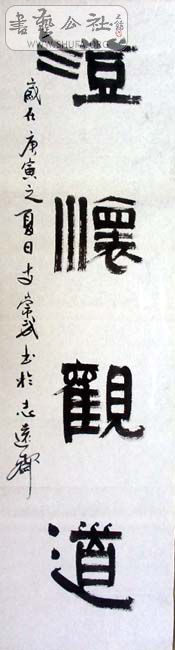 書藝公社
WWW.SHUFA.ORG
澄懷觀道
歲在庚寅之夏日李崇武書於志遠齋